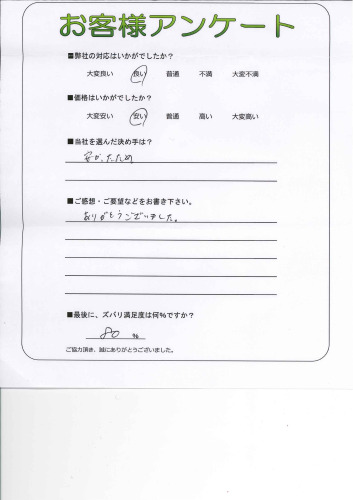 お客様アンケート
■弊社の対応はいかがでしたか?
大変良い 良い 普通 不満 大変不満
■価格はいかがでしたか?
大変安い 安い 普通 高い 大変高い
■当社を選んだ決め手は?
安かったため
■ご感想・ご要望などをお書き下さい。
ありがとうございました。
■最後に、ズバリ満足度は何%ですか?
80 %
ご協力頂き、誠にありがとうございました。